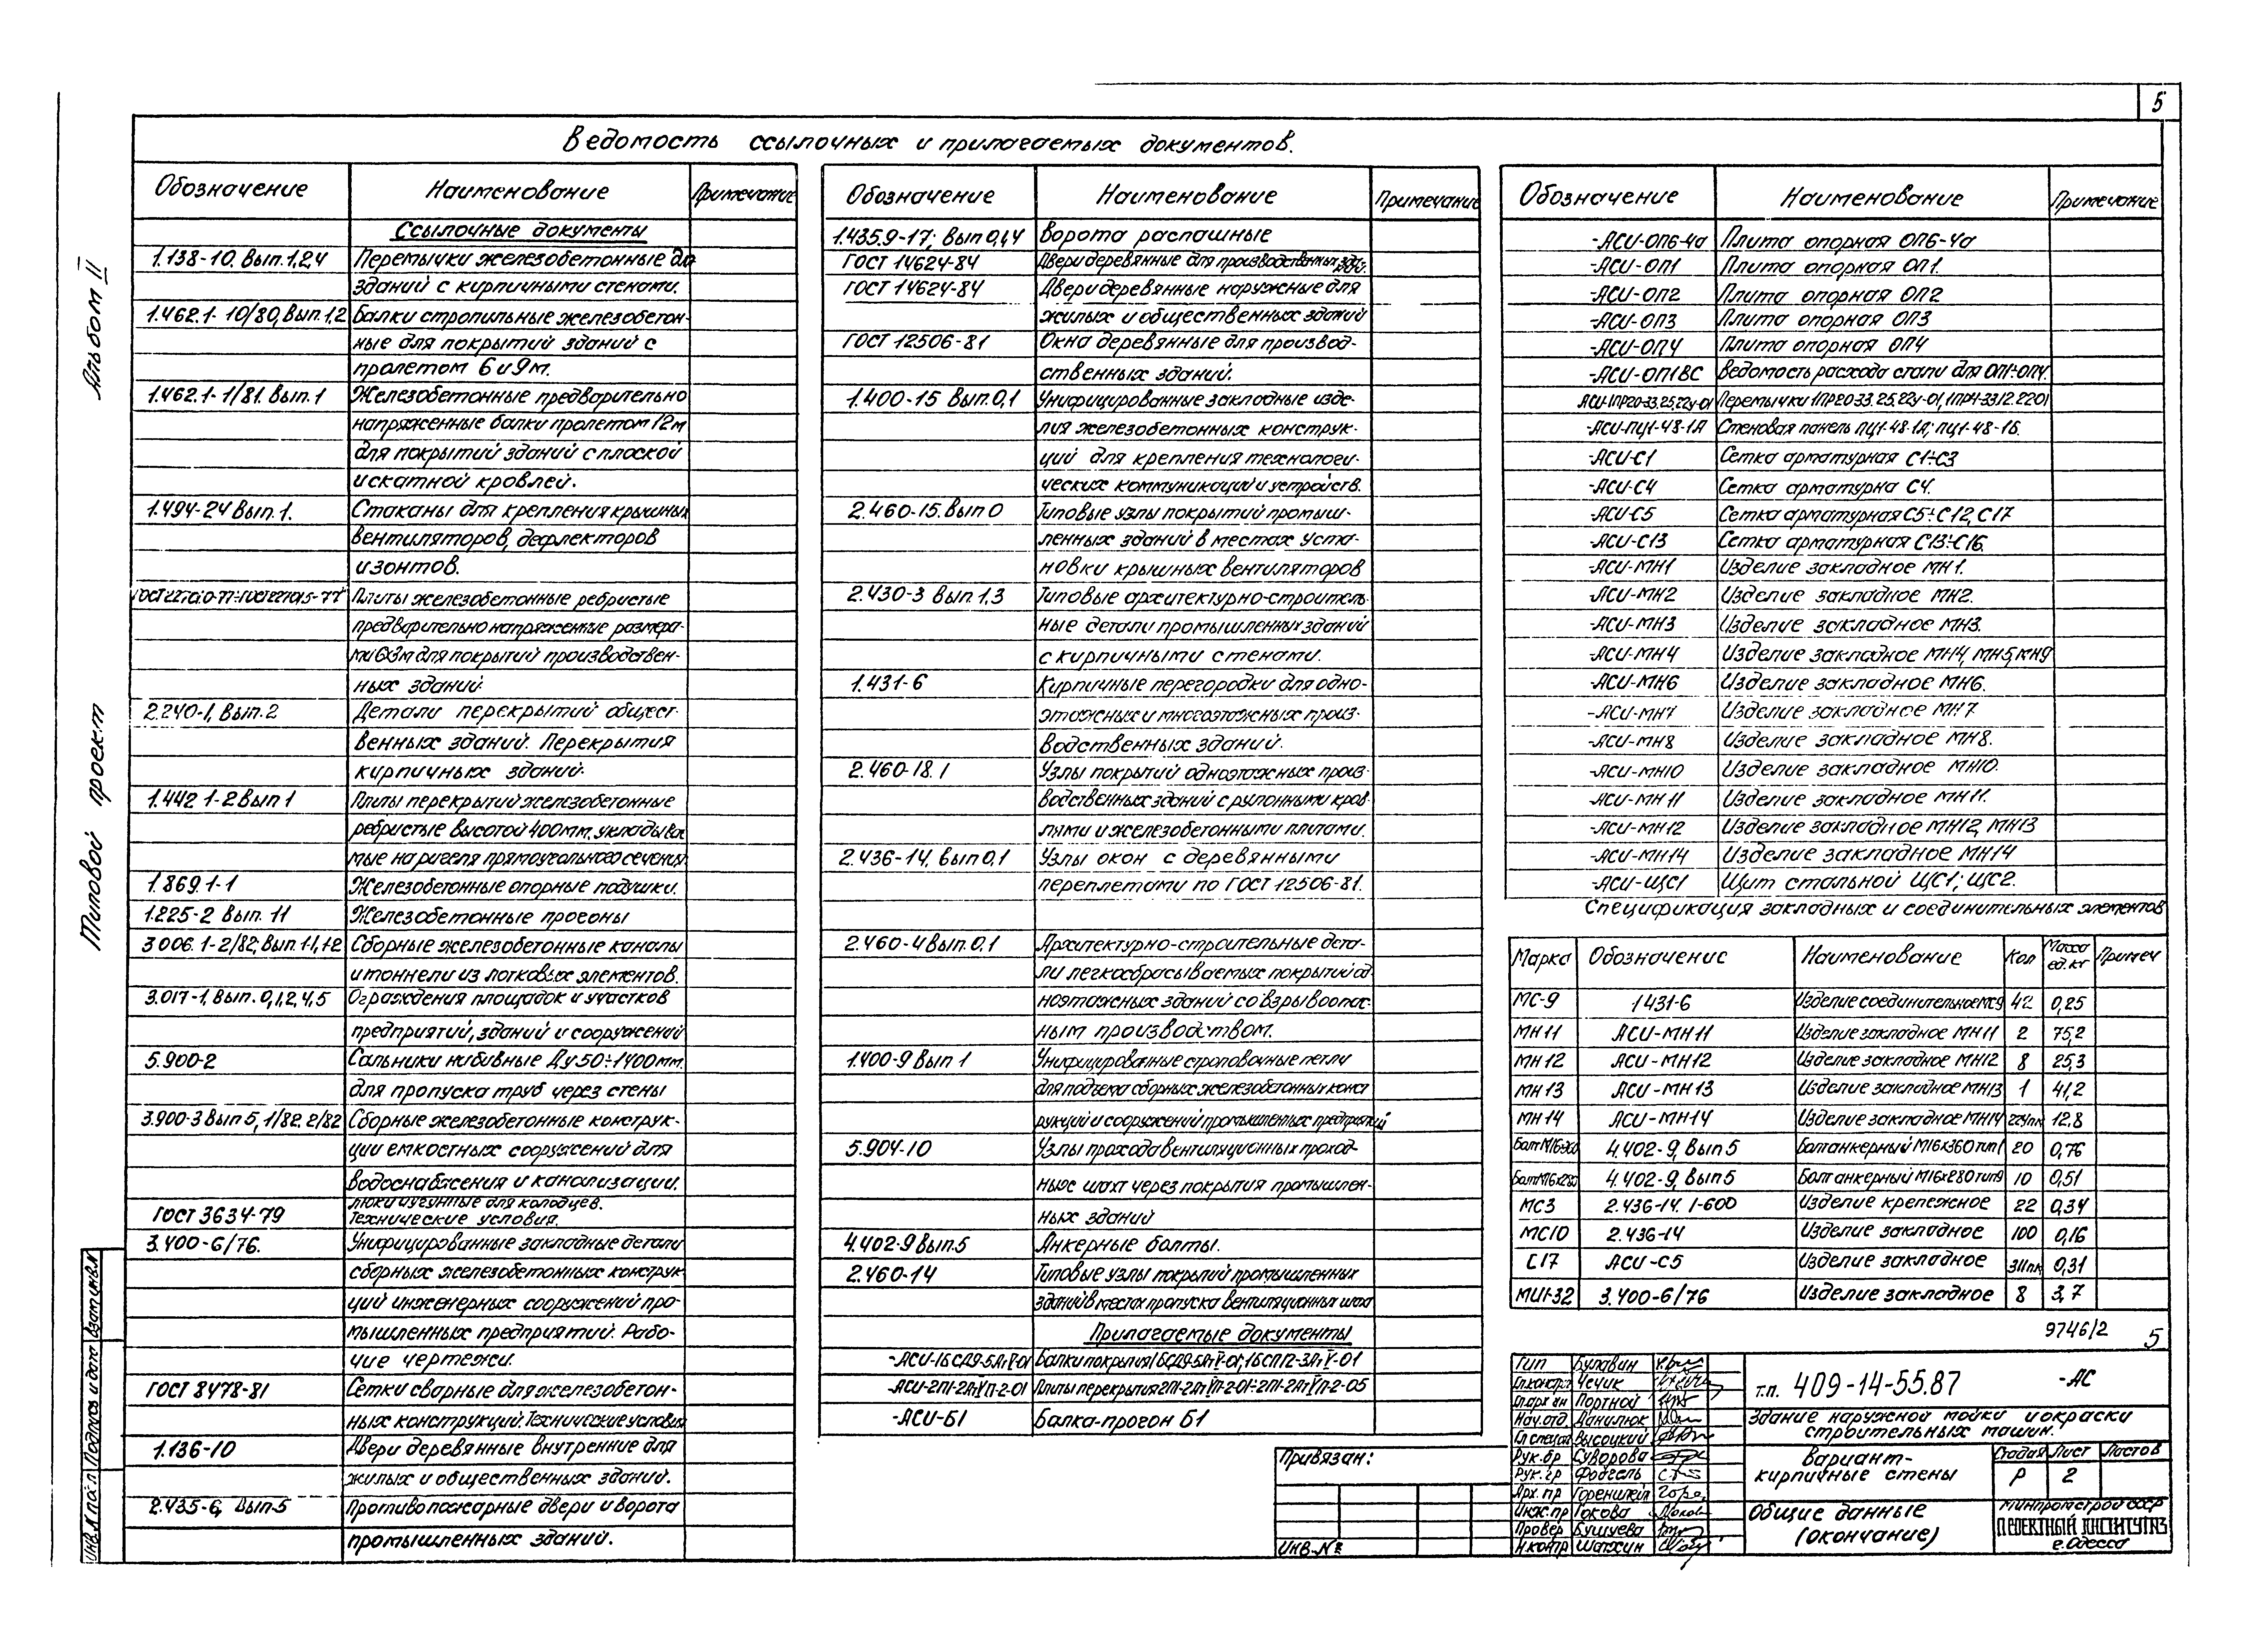 5
Ведомость ссылочных и прилагаемых документов.
Альбом II
Типовой проект
Обозначение Наименование Примечание
Ссылочные документы
1.138-10. Вып.1,2,4 Перемычки железобетонные для
зданий с кирпичными стенами.
1.462.1-10/80, Вып.1,2 Балки стропильные железобетон-
ные для покрытий зданий с
пролетом 6 и 9м.
1.462.1-1/81. Вып.1 Железобетонные предварительно
напряженные балки пролетом 12м
для покрытий зданий с плоской
и скатной кровлей.
1.494-24 Вып.1. Стаканы для крепления крышных
вентиляторов, дефлекторов
и зонтов.
Плиты железобетонные ребристые
предварительно напряженные размера-
ми 6х3м для покрытий производствен-
ных зданий.
2.240-1, Вып.2 Детали перекрытий общест-
венных зданий. Перекрытия
кирпичных зданий.
1.442.1-2 Вып 1 Плиты перекрытий железобетонные
ребристые высотой 400мм, укладывае
мые на ригеля прямоугольного сечения
1.869.1-1 Железобетонные опорные подушки.
1.225-2 Вып. 11 Железобетонные прогоны
3.006.1-2/82, Вып 1-1, 1-2 Сборные железобетонные каналы
и тоннели из лотковых элементов.
3.017-1, Вып. 0,1,2,4,5 Ограждения площадок и участков
предприятий, зданий и сооружений
5.900-2 Сальники набивные Ду 50÷1400мм.
для пропуска труб через стены
3.900-3 Вып 5, 1/82. 2/82 Сборные железобетонные конструк-
ции емкостных сооружений для
водоснабжения и канализации.
ГОСТ 3634-79 Люки чугунные для колодцев.
Технические условия.
3.400-6/76. Унифицированные закладные детали
сборных железобетонных конструк
ций инженерных сооружений про-
мышленных предприятий. Рабо-
чие чертежи.
ГОСТ 8478-81 Сетки сварные для железобетон-
ных конструкций. Технические условия
1.136-10 Двери деревянные внутренние для
жилых и общественных зданий.
2.435-6, Вып.5 Противопожарные двери и ворота
промышленных зданий.
Обозначение Наименование Примечание
1.435.9-17; Вып 0,1,4 Ворота распашные
ГОСТ 14624-84 Двери деревянные для производственных
ГОСТ 14624-84 Двери деревянные наружные для
жилых и общественных зданий
ГОСТ 12506-81 Окна деревянные для производ-
ственных зданий.
1.400-15 Вып.0,1 Унифицированные закладные изде-
лия железобетонных конструк-
ций для крепления технологи-
ческих коммуникаций и устройств.
2.460-15. Вып 0 Типовые узлы покрытий промыш-
ленных зданий в местах уста-
новки крышных вентиляторов
2.430-3 Вып 1,3 Типовые архитектурно-строитель-
ные детали промышленных зданий
с кирпичными стенами.
1.431-6 Кирпичные перегородки для одно-
этажных и многоэтажных произ-
водственных зданий.
2.460-18.1 Узлы покрытий одноэтажных произ-
водственных зданий с рулонными кров-
лями и железобетонными плитами.
2.436-14, Вып 0,1 Узлы окон с деревянными
переплетами по ГОСТ 12506-81.
2.460-4 Вып.0,1 Архитектурно-строительные дета-
ли легкосбрасываемых покрытий од
ноэтажных зданий со взрывоопас-
ным производством.
1.400-9 Вып 1 Унифицированные строповочные петли
для подъема сборных железобетонных конст
рукций и сооружений промышленных предприятий
5.904-10 Узлы прохода вентиляционных проход-
ных шахт через покрытия промышлен-
ных зданий
4.402-9 Вып.5 Анкерные болты.
2.460-14 Типовые узлы покрытий промышленных
зданий в местах пропуска вентиляционных шахт
Прилагаемые документы
Балки покрытия
Плиты перекрытия
-АСИ-Б1 Балка-прогон Б1
Обозначение Наименование Примечание
-АСИ-ОП6-4а Плита опорная ОП6-4а
-АСИ-ОП1 Плита опорная ОП1.
-АСИ-ОП2 Плита опорная ОП2
-АСИ-ОП3 Плита опорная ОП3
-АСИ-ОП4 Плита опорная ОП4
-АСИ-ОП1ВС Ведомость расхода стали для ОП1÷ОП4.
Перемычки
-АСИ-ПЦ1-48-1А Стеновая панель ПЦ1-48-1А; ПЦ1-48-1Б.
-АСИ-С1 Сетка арматурная С1÷С3
-АСИ-С4 Сетка арматурна С4.
-АСИ-С5 Сетка арматурная С5÷С12, С17
-АСИ-С13 Сетка арматурная С13÷С16.
-АСИ-МН1 Изделие закладное МН1.
-АСИ-МН2 Изделие закладное МН2.
-АСИ-МН3 Изделие закладное МН3.
-АСИ-МН4 Изделие закладное МН4, МН5, МН9
-АСИ-МН6 Изделие закладное МН6.
-АСИ-МН7 Изделие закладное МН7
-АСИ-МН8 Изделие закладное МН8.
-АСИ-МН10 Изделие закладное МН10.
-АСИ-МН11 Изделие закладное МН11.
-АСИ-МН12 Изделие закладное МН12, МН13
-АСИ-МН14 Изделие закладное МН14
-АСИ-ЩС1 Щит стальной ЩС1; ЩС2.
Спецификация закладных и соединительных элементов
Марка Обозначение Наименование Кол Масса ед.кг Примеч
МС-9 1431-6 Изделие соединительное МС9 42 0,25
МН11 АСИ-МН11 Изделие закладное МН11 2 75,2
МН12 АСИ-МН12 Изделие закладное МН12 8 25,3
МН13 АСИ-МН13 Изделие закладное МН13 1 41,2
МН14 АСИ-МН14 Изделие закладное МН14 12.8
Болт М16х360 4.402-9, Вып 5 Болт анкерный М16х360 тип1 20 0,76
Болт М16х280 4.402-9, Вып 5 Болт анкерный М16х280 тип9 10 0,51
МС3 2.436-14. 1-600 Изделие крепежное 22 0,34
МС10 2.436-14 Изделие закладное 100 0,16
С17 АСИ-С5 Изделие закладное 0,31
МИ1-32 3.400-6/76 Изделие закладное 8 3,7
9746/2 5
Гип Булавин
Гл.констр Чечик
Гл.арх ин Портной
Нач.отд. Данилюк
Гл специал Высоцкий
Рук.бр Суворова
Рук.гр Фогель
Арх.пр
Инж.пр Гокова
Провер Бушуева
Н.контр Шапхин
т.п. 409-14-55.87 -АС
Здание наружной мойки и окраски
строительных машин.
Вариант-
кирпичные стены
Стадия Лист Листов
Р 2
Общие данные
(окончание)
Минпромстрой СССР
ПРОЕКТНЫЙ ИНСТИТУТ №3
г.Одесса
Привязан:
Инв.№
Инв.№ подл Подпись и дата Взам.инв.№